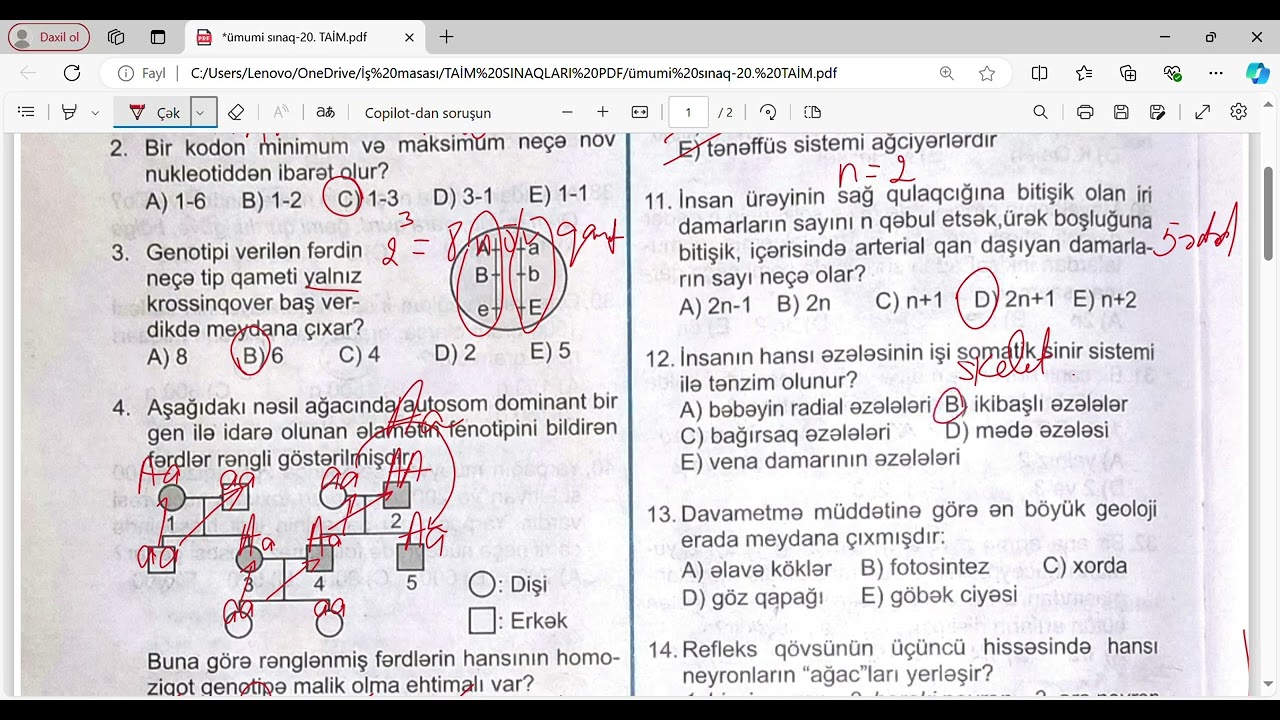 Daxil ol
*ümumi sınaq-20. TAİM.pdf
Fayl
C:/Users/Lenovo/OneDrive/İş%20masası/TAİM%20SINAQLARI%20PDF/ümumi%20sınaq-20.%20TAİM.pdf
Çək
aあ
Copilot-dan soruşun
1 / 2
2. Bir kodon minimum və maksimum neçə növ
nukleotiddən ibarət olur?
A) 1-6 B) 1-2 C) 1-3 D) 3-1 E) 1-1
2³ = 8
qamet
3. Genotipi verilən fərdin
neçə tip qameti yalnız
krossinqover baş ver-
dikdə meydana çıxar?
A a
B b
e E
A) 8 B) 6 C) 4 D) 2 E) 5
4. Aşağıdakı nəsil ağacında autosom dominant bir
gen ilə idarə olunan əlamətin fenotipini bildirən
fərdlər rəngli göstərilmişdir.
Aa
Aa aa aa AA
1 2
aa Aa Aa Aa
3 4 5
aa aa
: Dişi
: Erkək
Buna görə rənglənmiş fərdlərin hansının homo-
ziqot genotipə malik olma ehtimalı var?
E) tənəffüs sistemi ağciyərlərdir
n = 2
11. İnsan ürəyinin sağ qulaqcığına bitişik olan iri
damarların sayını n qəbul etsək,ürək boşluğuna
bitişik, içərisində arterial qan daşıyan damarla-
rın sayı neçə olar?
5 ədəd
A) 2n-1 B) 2n C) n+1 D) 2n+1 E) n+2
skelet
12. İnsanın hansı əzələsinin işi somatik sinir sistemi
ilə tənzim olunur?
A) bəbəyin radial əzələləri B) ikibaşlı əzələlər
C) bağırsaq əzələləri D) mədə əzələsi
E) vena damarının əzələləri
13. Davametmə müddətinə görə ən böyük geoloji
erada meydana çıxmışdır:
A) əlavə köklər B) fotosintez C) xorda
D) göz qapağı E) göbək ciyəsi
14. Refleks qövsünün üçüncü hissəsində hansı
neyronların "ağac"ları yerləşir?